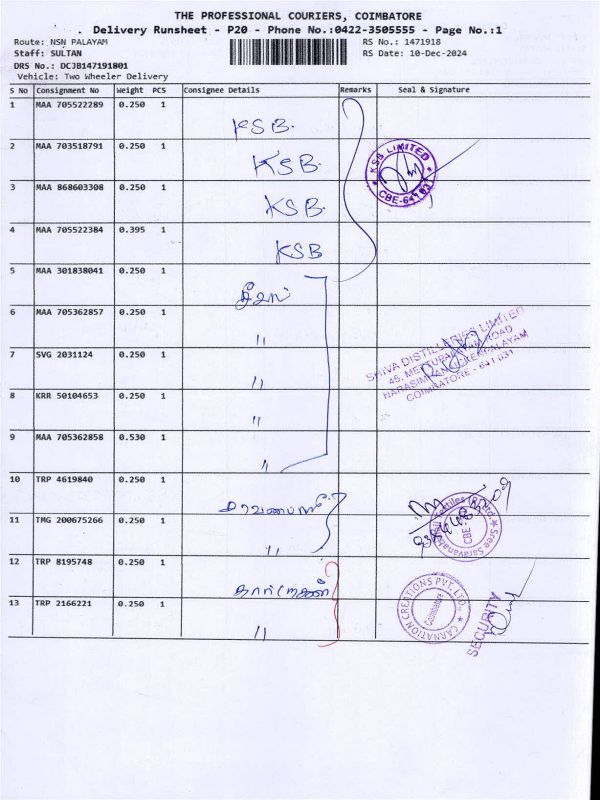 THE PROFESSIONAL COURIERS, COIMBATORE
Delivery Runsheet - P20 - Phone No.:0422-3505555 - Page No.:1
Route: NSN PALAYAM RS No.: 1471918
Staff: SULTAN RS Date: 10-Dec-2024
DRS No.: DCJB147191801
Vehicle: Two Wheeler Delivery
S No Consignment No Weight PCS Consignee Details Remarks Seal & Signature
1 MAA 705522289 0.250 1 KSB.
2 MAA 703518791 0.250 1 KSB.
KSB LIMITED CBE-641 031
3 MAA 868603308 0.250 1 KSB.
4 MAA 705522384 0.395 1 KSB
5 MAA 301838041 0.250 1
6 MAA 705362857 0.250 1 "
7 SVG 2031124 0.250 1 "
SHIVA DISTILLERIES LIMITED
45, METTUPALAYAM ROAD
NARASIMANAICKENPALAYAM
COIMBATORE - 641 031
8 KRR 50104653 0.250 1 "
9 MAA 705362858 0.530 1 "
10 TRP 4619840 0.250 1
11 TMG 200675266 0.250 1 "
CBE
12 TRP 8195748 0.250 1
CARNATION CREATIONS PVT. LTD.
Coimbatore
13 TRP 2166221 0.250 1 "
SECURITY